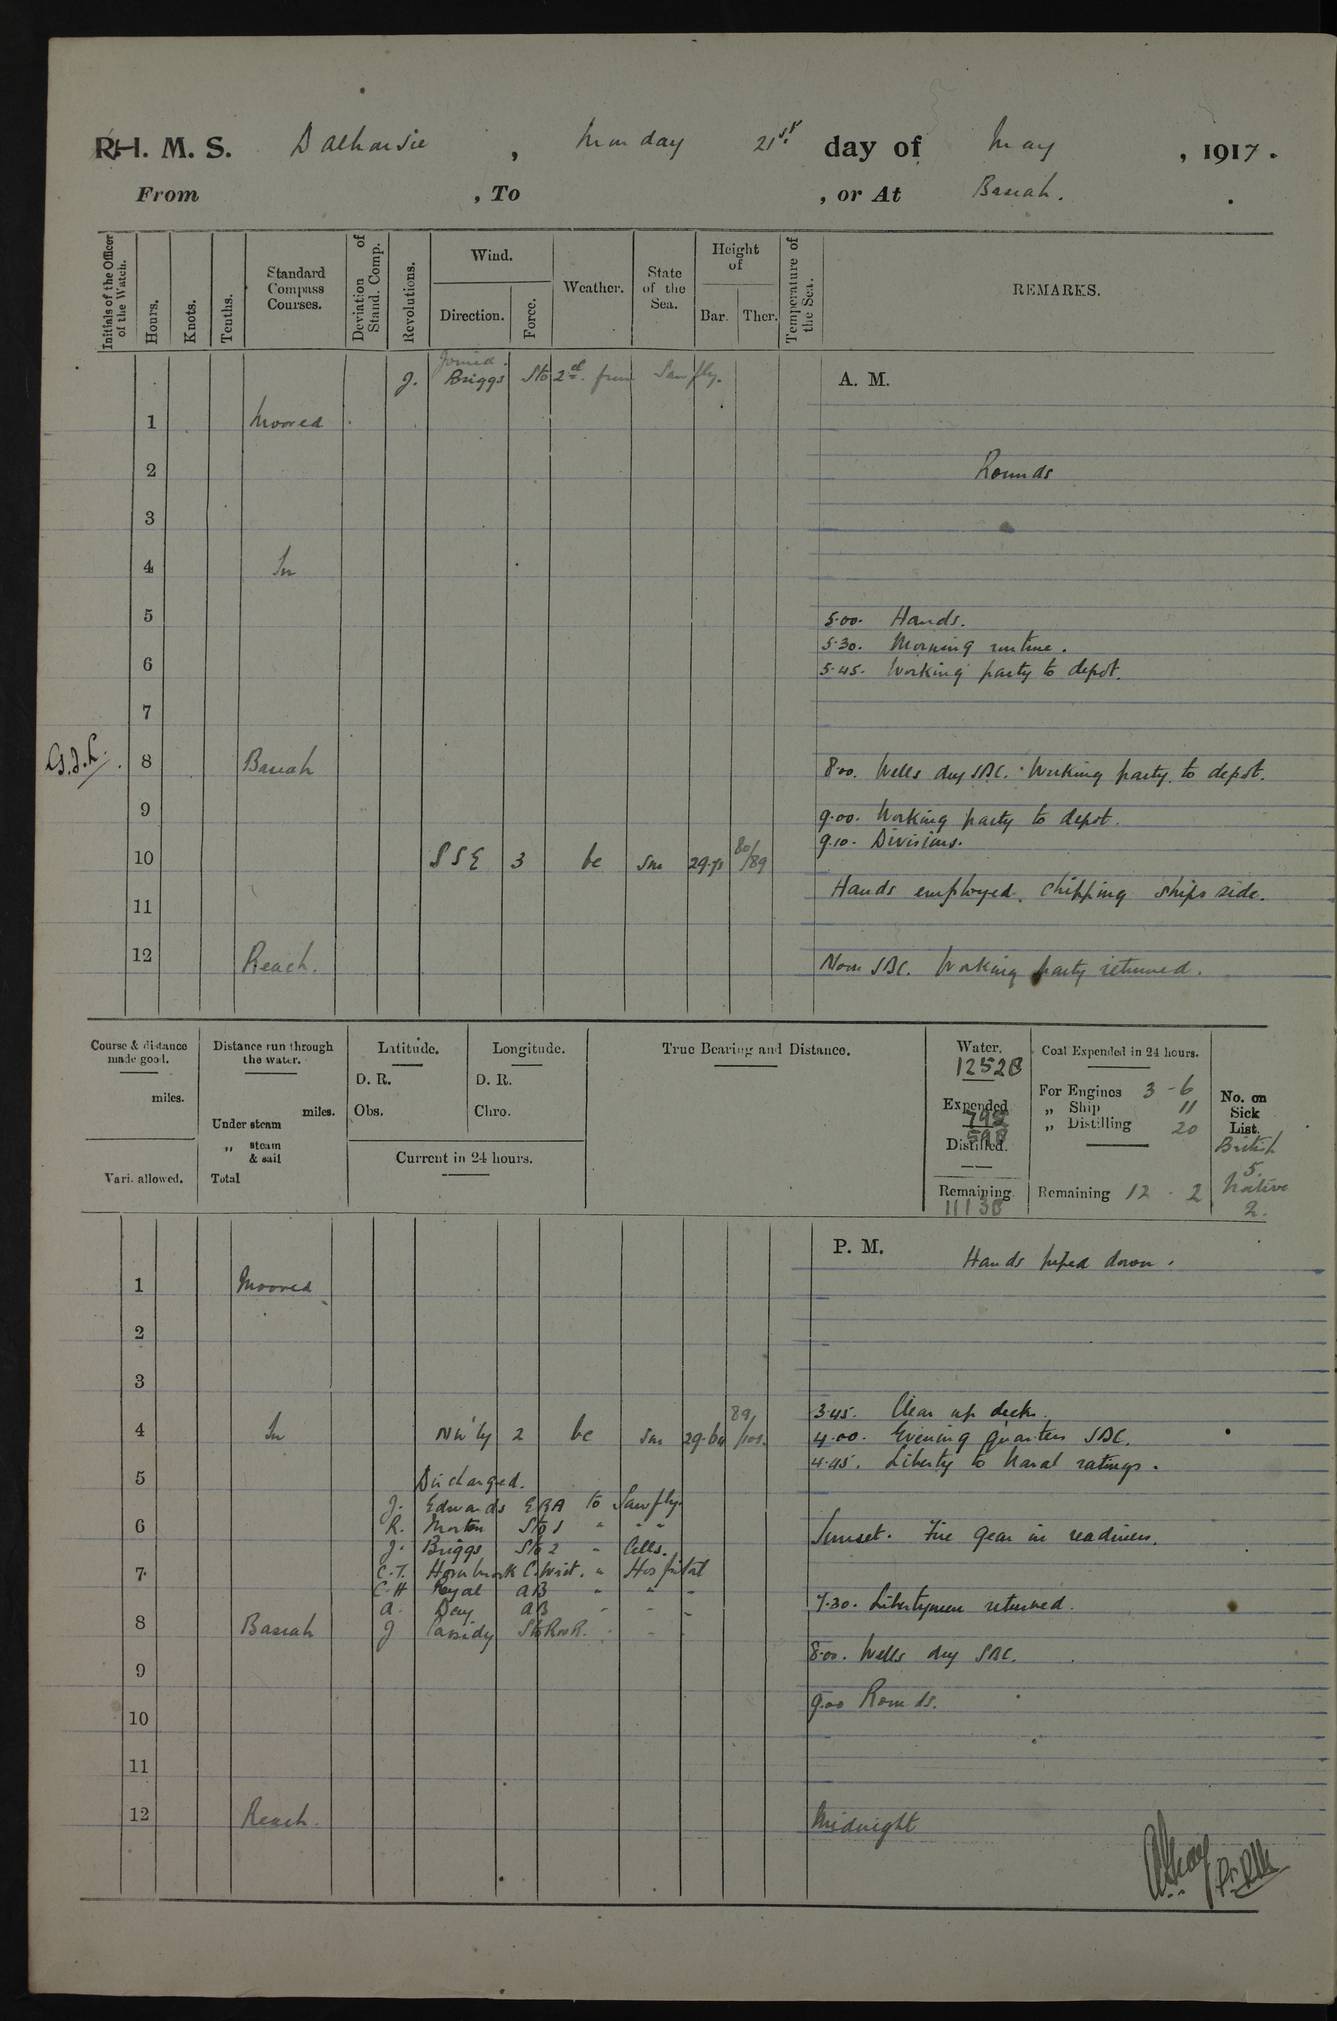 R.H. M. S. Dalhousie, Monday 21st. day of May, 1917.
From , To , or At Basrah.
Initials of the Officer of the Watch.
Hours.
Knots.
Tenths.
Standard Compass Courses.
Deviation of Stand. Comp.
Revolutions.
Wind.
Direction.
Force.
Weather.
State of the Sea.
Height of
Bar.
Ther.
Temperature of the Sea.
REMARKS.
Joined.
J. Briggs Sto 2nd. from Sawfly.
A. M.
1 Moored
2 Rounds
3
4 In
5 5.00. Hands.
5.30. Morning routine.
6 5.45. Working party to depot.
7
8 Basrah 8.00. Wells dry SBC. Working party to depot.
9 9.00. Working party to depot.
9.10. Divisions.
10 SSE 3 bc Sm 29.71 80/89
Hands employed chipping ships side.
11
12 Reach. Noon SBC. Working party returned.
Course & distance made good.
miles.
Vari. allowed.
Distance run through the water.
miles.
Under steam
„ steam & sail
Total
Latitude.
D. R.
Obs.
Longitude.
D. R.
Chro.
Current in 24 hours.
True Bearing and Distance.
Water.
12528
Expended
Distilled.
Remaining
11138
Coal Expended in 24 hours.
For Engines 3 - 6
„ Ship 11
„ Distilling 20
Remaining 12 - 2
No. on Sick List.
British
5.
Native
2.
P. M. Hands piped down.
1 Moored
2
3
3.45. Clear up decks.
4 In NW'ly 2 bc Sm 29.64 89/101. 4.00. Evening quarters SBC.
4.45. Liberty to Naval ratings.
5 Discharged.
J. Edwards ERA to Sawfly
6 R. Morton Sto 1 " " " Sunset. Fire gear in readiness.
J. Briggs Sto 2 - Cells.
7 C.T. Hornbrook C. Writ. " Hospital
C.H Royal AB " " -
A. Day AB - - - 7.30. Libertymen returned.
8 Basrah J Cassidy Sto RNR. - - -
8.00. Wells dry SBC.
9
9.00 Rounds.
10
11
12 Reach. Midnight